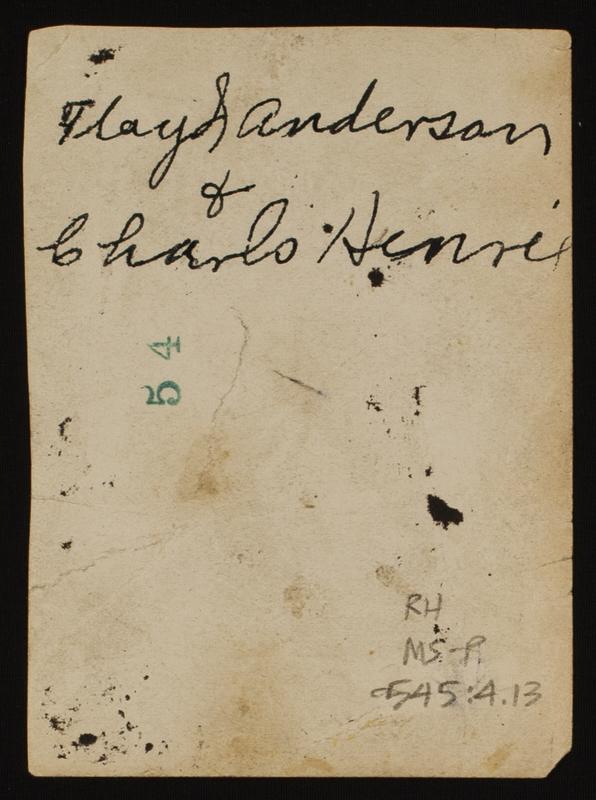 Floyd Anderson
&
Charls Henrie
54
RH
MS-P
545:4.13